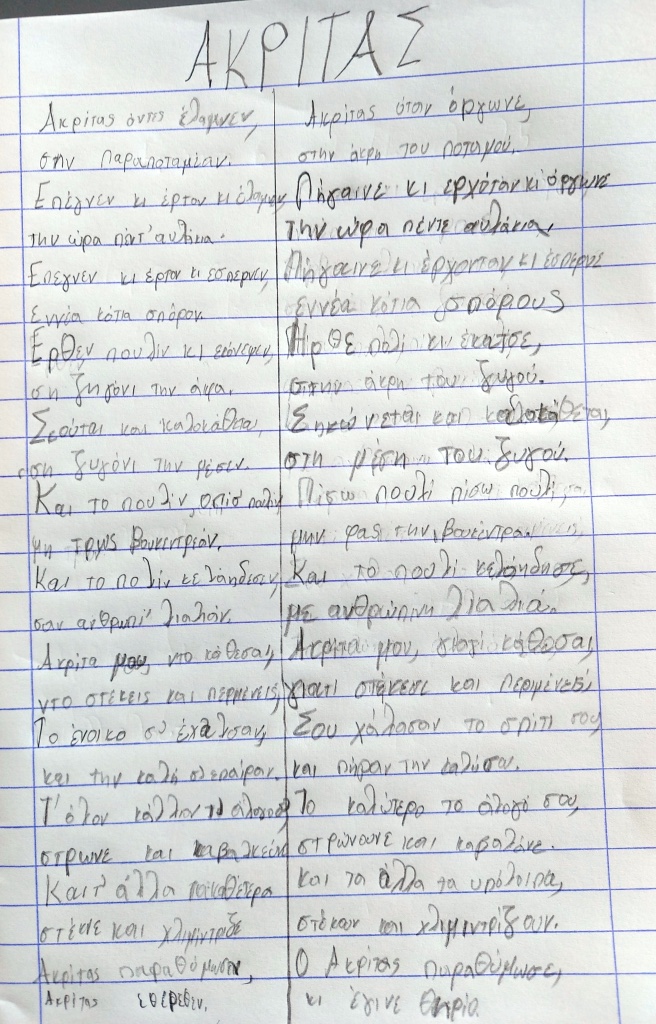 ΑΚΡΙΤΑΣ
Ακρίτας όντες έλαμνεν,
σην παραποταμίαν.
Επέγνεν κι έρτον κι έλαμνεν
την ώρα πέντ' αυλάκια.
Επέγνεν κι έρτον κι εσπερνεν,
εννέα κότια σπόρον
Ερθεν πουλίν κι
ση ζηγόνι την άκρα.
Σκούται και καλοκάθεται,
ση ζυγόνι την μέσεν.
Και το πουλίν, οπίσ' πουλίν
μη τρως βουκεντρέαν.
Και το πολίν κελάηδεσεν,
σαν ανθρωπί' λαλίαν.
Ακρίτα μου, ντο κάθεσαι,
ντο στέκεις και περμένεις,
Το ένοικο σ' εχάλασαν,
και την καλή σ' επαίραν.
Τ' όλον κάλλιον τ' άλογο σ'
στρώνε και καβαλκεύνε
Και τ' άλλα
στέκνε και χλιμιντρίζνε
Ακρίτας παραθύμωσεν,
Ακρίτας
Ακρίτας όταν όργωνε,
στην άκρη του ποταμού.
Πήγαινε κι ερχόταν κι όργωνε
την ώρα πέντε αυλάκια
Πήγαινε κι έρχονταν κι έσπερνε
εννέα κότια σπόρους
Ηρθε πολί κι έκατσε,
στην άκρη του ζυγού.
Σηκώνεται και καλοκάθεται,
στη μέση του ζυγού.
Πίσω πουλί πίσω πουλί,
μην φας την βουκέντρα.
Και το πουλί κελάηδησε,
με ανθρώπινη λιαλιά.
Ακρίτα μου, γιατί κάθεσαι,
γιατί στέκεσε και περιμένεις
Σου χάλασαν το σπίτι σου
και πήραν την καλή σου.
Το καλύτερο το άλογό σου,
στρώνουνε και καβαλάνε.
και τα άλλα τα υπόλοιπα,
στέκουν και χλιμιντρίζουν.
Ο Ακρίτας παραθύμωσε,
κι έγινε θηρίο.